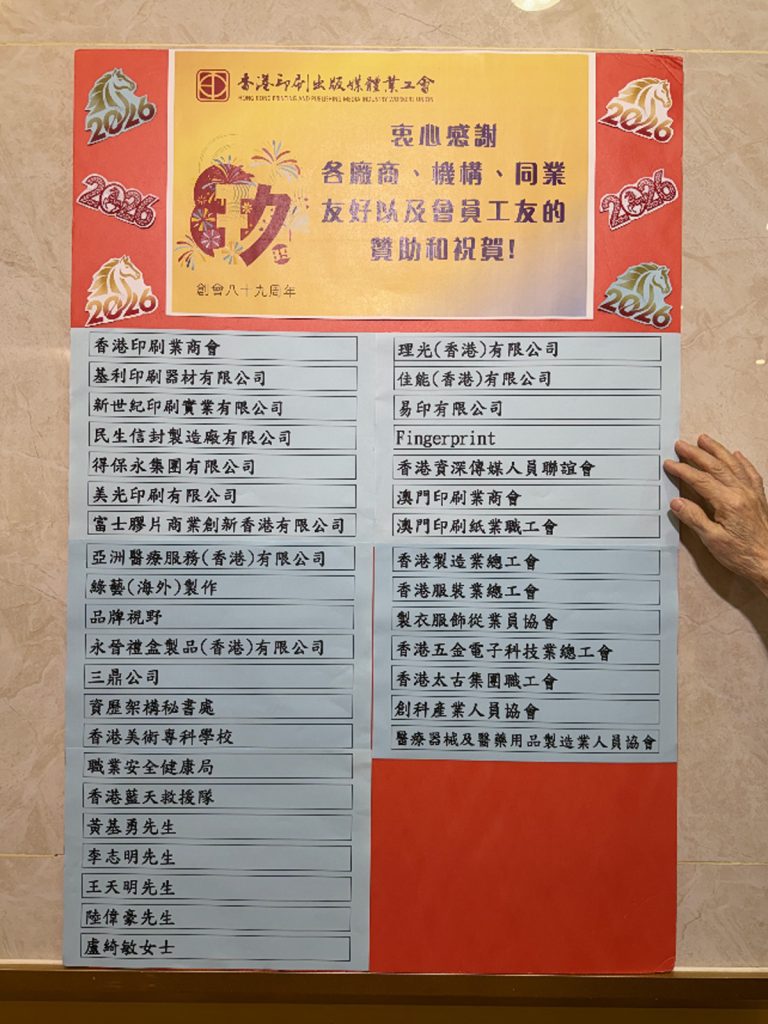 香港印刷出版媒體業工會
HONG KONG PRINTING AND PUBLISHING MEDIA INDUSTRY WORKERS UNION
衷心感謝
各廠商、機構、同業
友好以及會員工友的
贊助和祝賀!
創會八十九周年
2026
2026
2026
2026
2026
2026
香港印刷業商會
基利印刷器材有限公司
新世紀印刷實業有限公司
民生信封製造廠有限公司
得保永集團有限公司
美光印刷有限公司
富士膠片商業創新香港有限公司
亞洲醫療服務(香港)有限公司
綠藝(海外)製作
品牌視野
永晉禮盒製品(香港)有限公司
三鼎公司
資歷架構秘書處
香港美術專科學校
職業安全健康局
香港藍天救援隊
黃基勇先生
李志明先生
王天明先生
陸偉豪先生
盧綺敏女士
理光(香港)有限公司
佳能(香港)有限公司
易印有限公司
Fingerprint
香港資深傳媒人員聯誼會
澳門印刷業商會
澳門印刷紙業職工會
香港製造業總工會
香港服裝業總工會
製衣服飾從業員協會
香港五金電子科技業總工會
香港太古集團職工會
創科產業人員協會
醫療器械及醫藥用品製造業人員協會